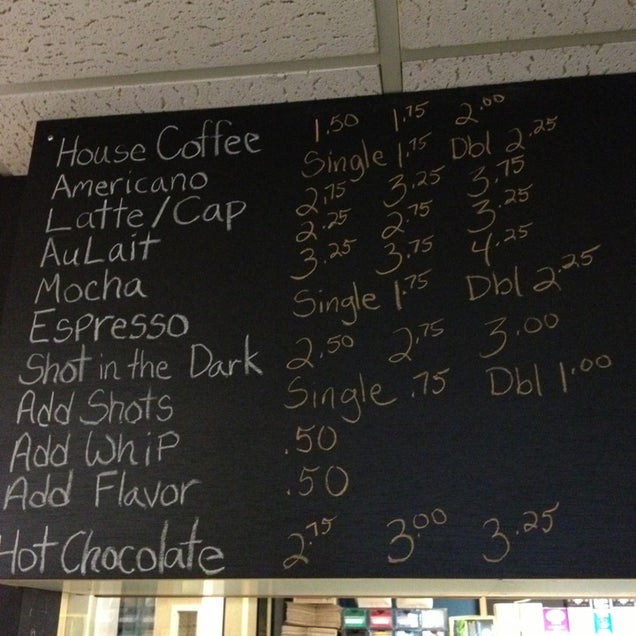 House Coffee 1.50 1.75 2.00
Americano Single 1.75 Dbl 2.25
Latte/Cap 2.75 3.25 3.75
AuLait 2.25 2.75 3.25
Mocha 3.25 3.75 4.25
Espresso Single 1.75 Dbl 2.25
Shot in the Dark 2.50 2.75 3.00
Add Shots Single .75 Dbl 1.00
Add Whip .50
Add Flavor .50
Hot Chocolate 2.75 3.00 3.25